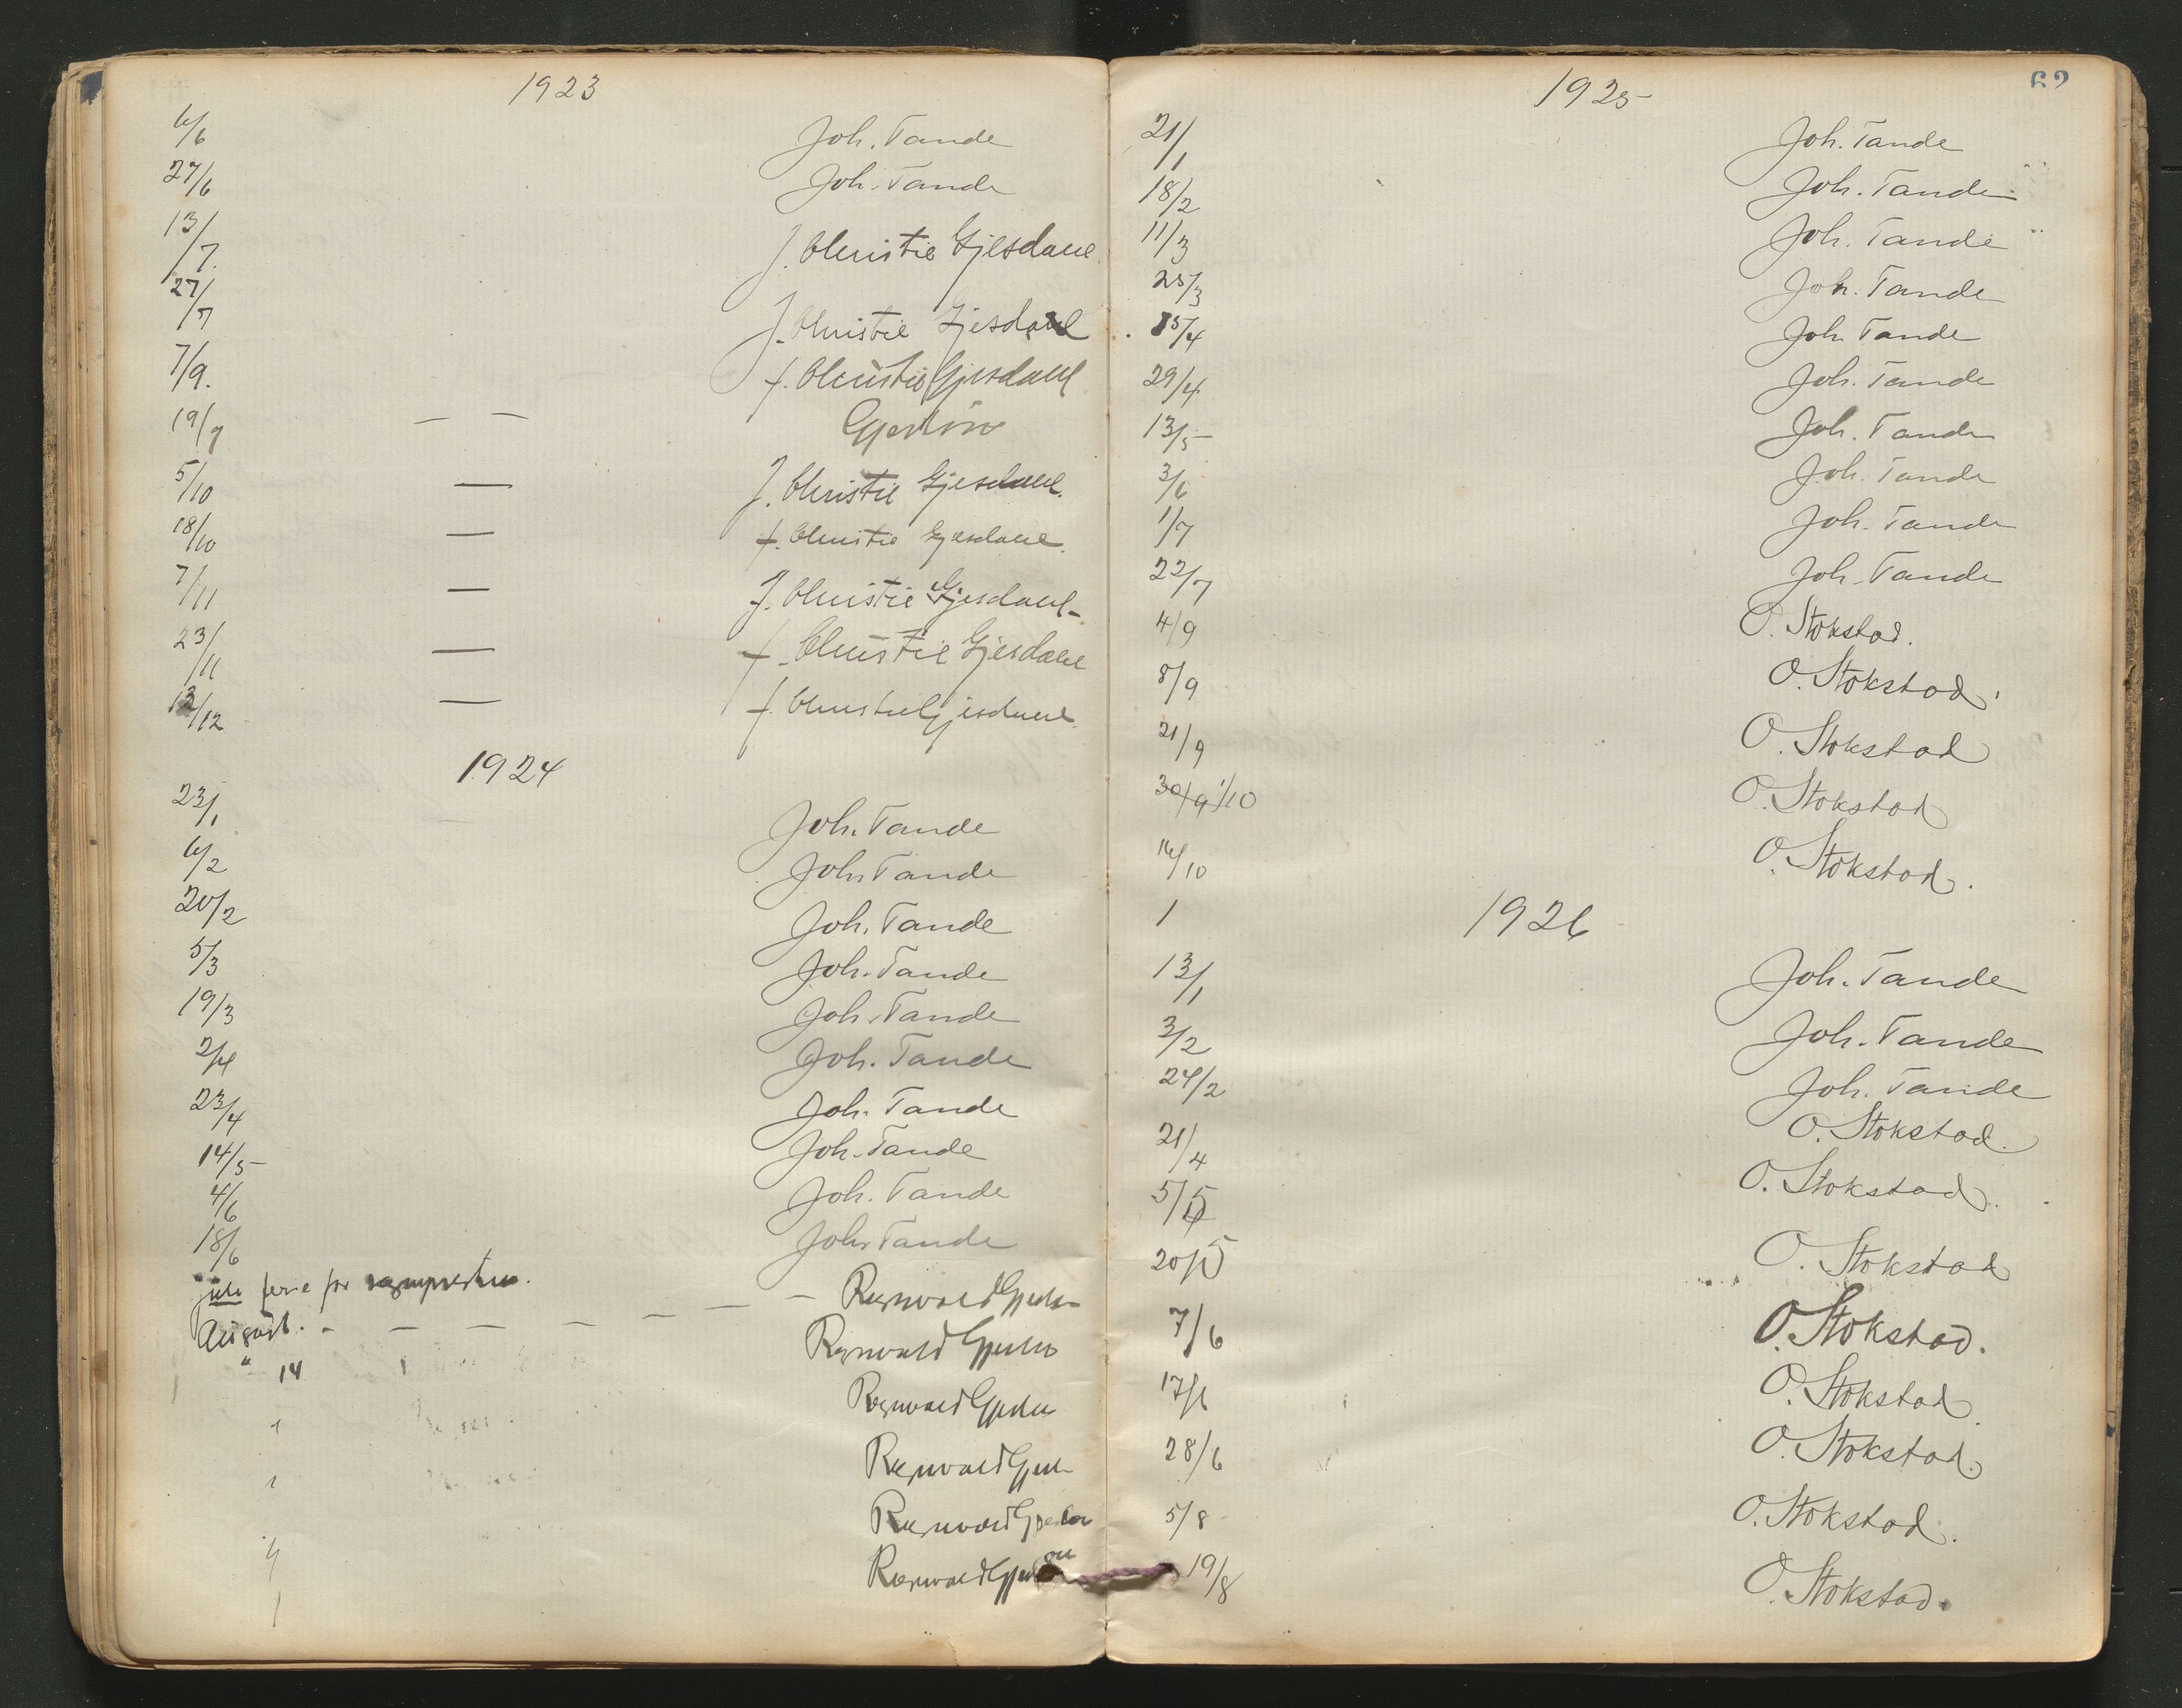 1923
6/6 Joh. Tande
27/6 Joh. Tande
13/7. J. Christie Gjesdahl
27/7 J. Christie Gjesdahl
7/9. J. Christie Gjesdahl
19/9 — —
5/10 — J. Christie Gjesdahl.
18/10 — J. Christie Gjesdahl.
7/11 — J. Christie Gjesdahl-
23/11 — J. Christie Gjesdahl
13/12 — J. Christie Gjesdahl.
1924
23/1 Joh. Tande
6/2 Joh Tande
20/2 Joh. Tande
5/3 Joh. Tande
19/3 Joh. Tande
2/4 Joh. Tande
23/4 Joh. Tande
14/5 Joh. Tande
4/6 Joh. Tande
18/6 Joh Tande
juli ferie for — — Ragnvald
August. - — — — — Ragnvald
" 14 Ragnvald
Ragnvald
Ragnvald
Ragnvald
62
1925
21/1 Joh. Tande
18/2 Joh. Tande
11/3 Joh. Tande
25/3 Joh. Tande
15/4 Joh Tande
29/4 Joh. Tande
13/5 Joh. Tande
3/6 Joh. Tande
1/7 Joh. Tande
22/7 Joh. Tande
4/9 O. Stokstad.
8/9 O. Stokstad.
21/9 O. Stokstad
30/9 1/10 O. Stokstad
16/10 O. Stokstad.
1 1926
13/1 Joh. Tande
3/2 Joh. Tande
24/2 Joh. Tande
21/4 O. Stokstad.
5/5 O. Stokstad.
20/5 O. Stokstad
7/6 O. Stokstad.
17/6 O. Stokstad.
28/6 O. Stokstad.
5/8 O. Stokstad.
19/8 O. Stokstad.